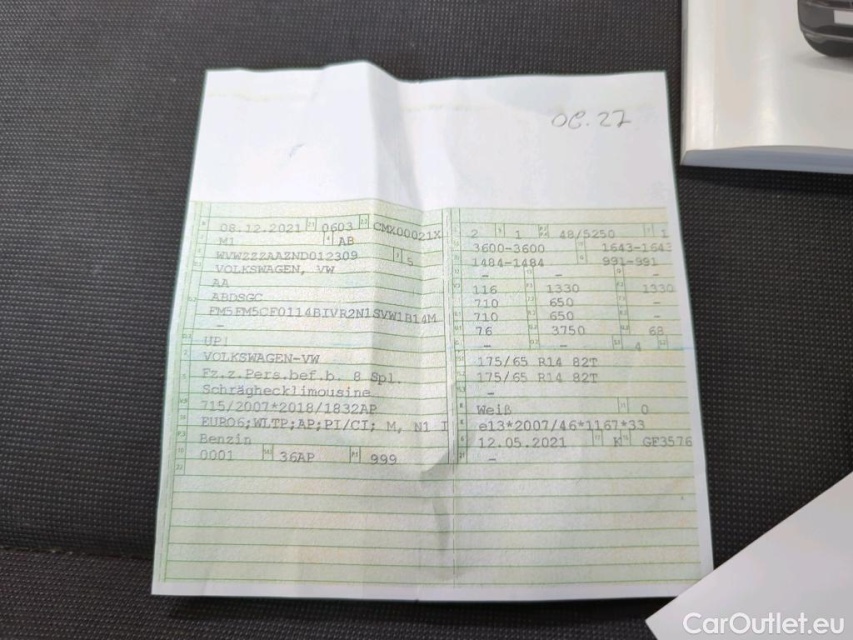 OC.27
08.12.2021 0603 CMX00021X
M1 AB
WVWZZZAAZND012309 5
VOLKSWAGEN, VW
AA
ABDSGC
FM5FM5CF0114BIVR2N1SVW1B14M
-
UP!
VOLKSWAGEN-VW
Fz.z.Pers.bef.b. 8 Spl.
Schräghecklimousine
715/2007*2018/1832AP
EURO6;WLTP;AP;PI/CI; M, N1 I
Benzin
0001 36AP 999
2 1 48/5250 1
3600-3600 1643-1643
1484-1484 991-991
- - -
116 1330 1330
710 650 -
710 650 -
76 3750 68
- - 4
175/65 R14 82T
175/65 R14 82T
-
Weiß 0
e13*2007/46*1167*33
12.05.2021 K GF3576
-
CarOutlet.eu